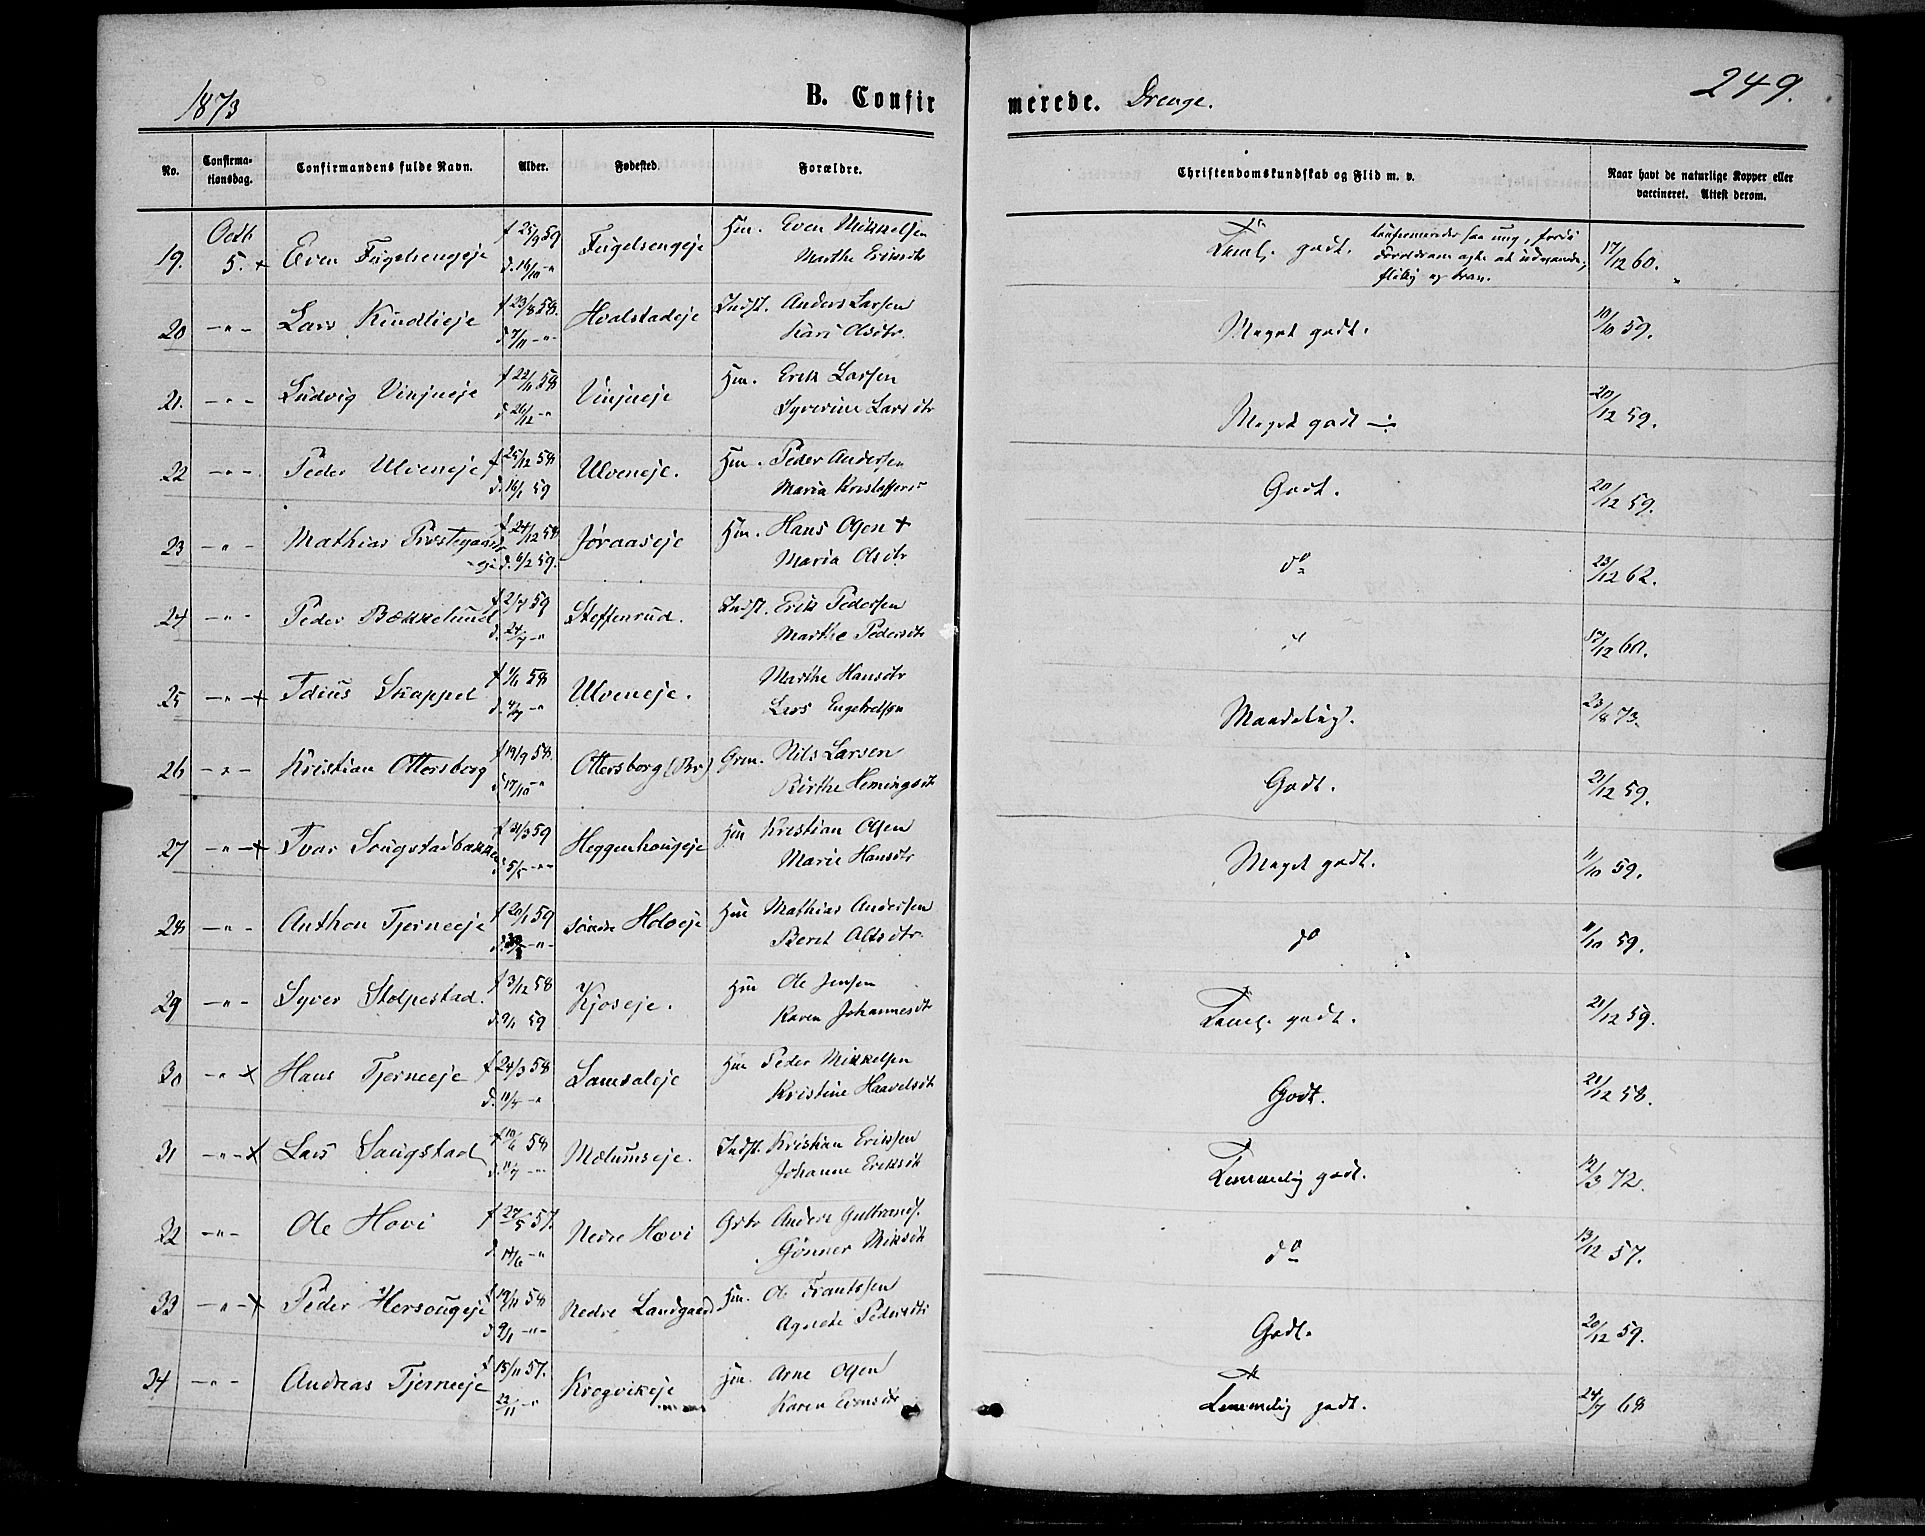 1873
B. Confirmerede. Drenge.
249.
No.
Confirmationsdag.
Confirmandens fulde Navn.
Alder.
Fødested.
Forældre.
Christendomskundskab og Flid m. v.
Naar havt de naturlige Kopper eller vaccineret. Attest derom.
19. Octb. 5. + Even Fugelsengeje f 25/9 59 Fugelsengeje Hm. Even Mikkelsen
d. 16/10 -"- Marthe Eriksdtr
Teml. godt. 17/12 60.
20 -"- Lars Kindlieje f 23/8 58. Hvalstadeje Indst. Anders Larsen
d 7/11 -"- Kari Olsdtr.
Meget godt. 10/10 59.
21. -"- Ludvig Vinjueje f 22/11 58 Vinjueje Hm. Erik Larsen
d 26/12 -"- Syverine Larsdtr
Meget godt -:- 20/12 59.
22 -"- Peder Ulveneje f 25/12 58 Ulveneje. Hm. Peder Andersen
d. 16/1 59 Maria Kristoffers
Godt. 20/12 59.
23 -"- Mathias Prestegaards- f 24/12 58 Joraaseje Hm. Hans Olsen +
eje d. 6/2 59. Maria Olsdtr
do 23/12 62.
24 -"- Peder Bækkelund f 2/7 59 Steffenrud. Indst. Erik Pedersen
d. 24/7 -"- Marthe Pedersdtr
" /12 60.
25 -"- + Idius Skappel f 1/6 58 Ulveneje. Marthe Hansdtr
d. 4/7 -"- Lars Engebretsen
Maadelig. 23/8 73.
26 -"- Kristian Ottersborg f 19/9 58. Ottersborg (Br) Grm. Nils Larsen
d 17/10 -"- Birthe Hemingsdt
Godt. 21/12 59.
27 -"- + Ivar Sougstadbakken f 31/3 59 Heggenhougeje Hm Kristian Olsen
d 5/5 -"- Marie Hansdtr
Meget godt. 11/10 59.
28 -"- Anthon Tjerneeje f 20/1 59 søndre Hoveje Hm Mathias Andersen
Beret Olsdtr.
do 11/10 59.
29 -"- Syver Stolpestad. f 3/12 58 Kjoseje. Hm Ole Jensen
d. 9/1 59 Karen Johannesdt
Teml. godt. 21/12 59.
30 -"- X Hans Tjerneeje f 24/3 58 Lamsaleje Hm Peder Mikkelsen
d. 11/4 -"- Kristine Haavelsdt
Godt. 21/12 58.
31 -"- X Lars Saugstad f 10/6 58 Mælumseje. Indst. Kristian Eriksen
d. 11/7 -"- Johanne Eriksdt
Temmelig godt. 12/3 72.
32 -"- Ole Hovi f 27/5 57. Nedre Hovi Gbr Anders Gulbrands.
d. 14/6 -"- Gønner Miksdt
do 13/12 57.
33 -"- X Peder Hersougeje f 19/11 58 Nedre Landgaard Hm. Ole Frantssen
d 9/1 -"- Agnethe Pedersdtr
Godt. 20/12 59.
34 -"- Andreas Tjerneeje f 15/11 57. Kregvikeje Hm. Arne Olsen
22/11 -"- Karen
Temmelig godt. 24/7 68